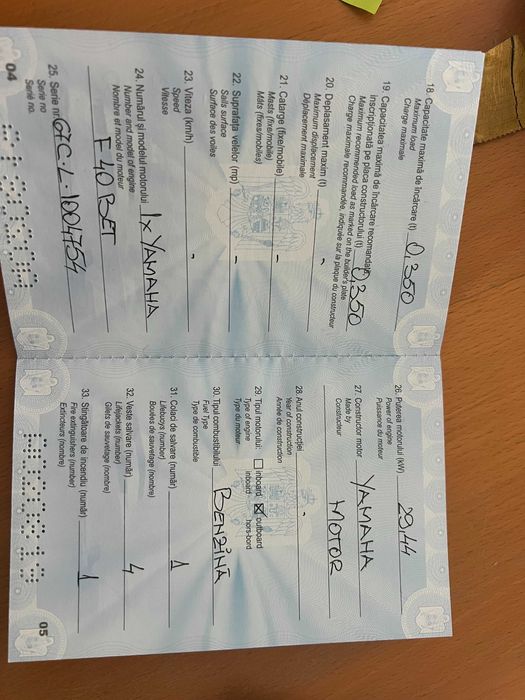 18. Capacitate maximă de încărcare (t) 0,350
Maximum load
Charge maximale
19. Capacitatea maximă de încărcare recomandată
inscripționată pe placa constructorului (t) 0,350
Maximum recommended load as marked on the builder's plate
Charge maximale recommandée, indiquée sur la plaque du constructeur
20. Deplasament maxim (t) -
Maximum displacement
Déplacement maximale
21. Catarge (fixe/mobile) -
Masts (fixe/mobile)
Mâts (fixes/mobiles)
22. Suprafața velelor (mp) -
Sails surface
Surface des voiles
23. Viteza (km/h) -
Speed
Vitesse
24. Numărul și modelul motorului 1x YAMAHA
Number and model of engine
Nombre et model du moteur
F40 BET
25. Serie nr. 67C-L-1004754
Serie no
Serie no.
04
26. Puterea motorului (kW) 29,44
Power of engine
Puissance du moteur
27 Constructor motor YAMAHA
Made by
Constructeur
MOTOR
28. Anul construcției -
Year of construction
Année de construction
29. Tipul motorului: inboard outboard
Type of engine inboard hors-bord
Type du moteur
30. Tipul combustibilului BENZINĂ
Fuel Type
Type de combustible
31. Colaci de salvare (număr) 1
Lifebuoys (number)
Bouées de sauvetage (nombre)
32. Veste salvare (număr) 4
Lifejackets (number)
Gilets de sauvetage (nombre)
33. Stingătoare de incendiu (număr) 1
Fire extinguishers (number)
Extincteurs (nombre)
05